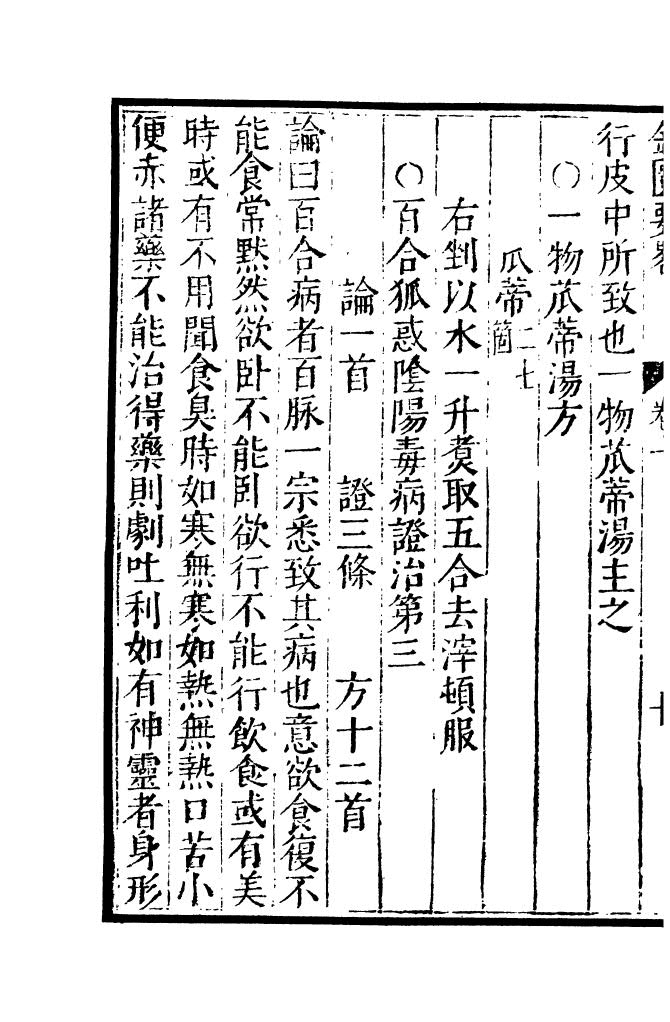 行皮中所致也一物苽蒂湯主之
○一物苽蒂湯方
瓜蒂二七箇
右剉以水一升煑取五合去滓頓服
○百合狐惑陰陽毒病證治第三
論一首 證三條 方十二首
論曰百合病者百脉一宗悉致其病也意欲食復不
能食常黙然欲卧不能卧欲行不能行飲食或有美
時或有不用聞食臭時如寒無寒如熱無熱口苦小
便赤諸藥不能治得藥則劇吐利如有神靈者身形